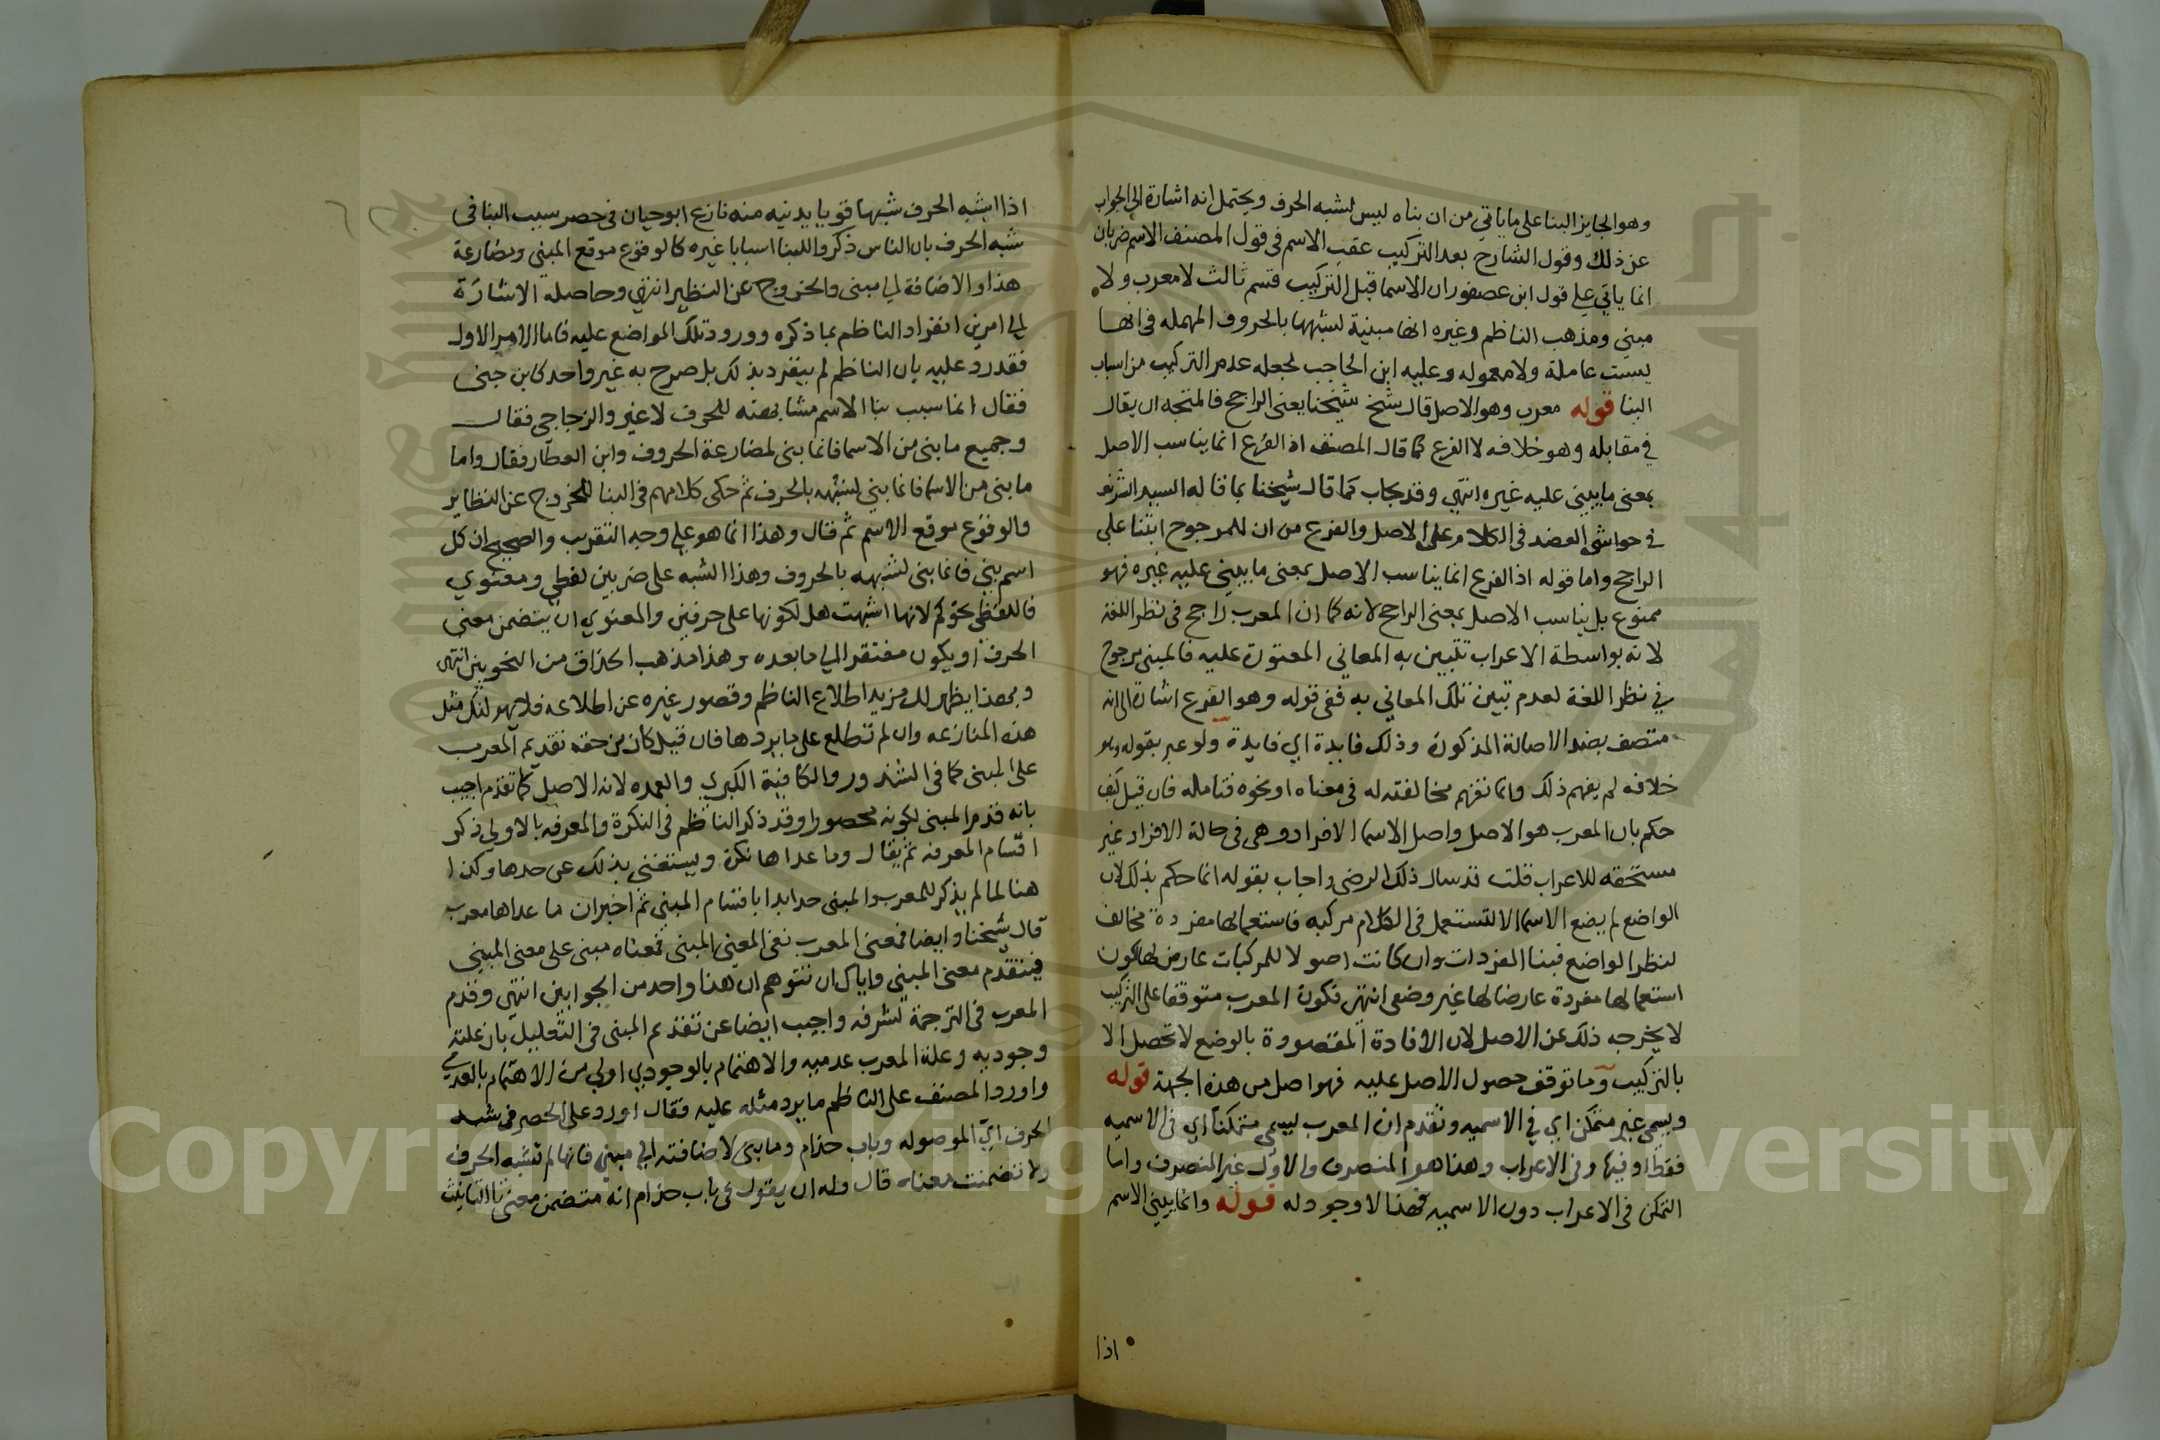 وهو الجايز البنا على ما ياتي من ان بناه ليس لشبه الحرف ويحتمل انه اشارة الى الجواب
عن ذلك وقول الشارح بعد التركيب عقب الاسم في قول المصنف الاسم ضربان
انما ياتي على قول ابن عصفور ان الاسما قبل التركيب قسم ثالث لا معرب ولا
مبني ومذهب الناظم وغيره انها مبنية لشبهها بالحروف المهمله في انها
ليست عاملة ولا معموله وعليه ابن الحاجب لجعله عدم التركيب من اسباب
البنا قوله معرب وهو الاصل قال شيخ شيخنا يعنى الراجح فالمتجه ان يقال
في مقابله وهو خلافه لا الفرع كما قال المصنف اذ الفرع انما يناسب الاصل
بمعنى ما يبنى عليه غيره انتهى وقد يجاب كما قال شيخنا بما قاله السيد الشريف
في حواشي العضد في الكلام على الاصل والفرع من ان للمرجوح ابتنا على
الراجح واما قوله اذ الفرع انما يناسب الاصل بمعنى ما يبنى عليه غيره فهو
ممنوع بل يناسب الاصل بمعنى الراجح لانه كما ان المعرب راجح في نظر اللغة
لانه بواسطة الاعراب تتبين به المعاني المعتورة عليه فالمبنى مرجوح
في نظر اللغة لعدم تبين تلك المعاني به ففي قوله وهو الفرع اشارة الى انه
متصف بضد الاصالة المذكورة وذلك فايدة اي فايدة ولو عبر بقوله وهو
خلافه لم يفهم ذلك وانما تفهم مخالفته له في معناه او نحوه فتامله فان قيل كيف
حكم بان المعرب هو الاصل واصل الاسما الافراد وهى في حالة الافراد غير
مستحقه للاعراب قلت قد سال ذلك الرضى واجاب بقوله انما حكم بذلك لان
الواضع لم يضع الاسما الا لتستعمل في الكلام مركبه فاستعمالها مفردة مخالف
لنظر الواضع فبنا المفردات وان كانت اصولا للمركبات عارض لها لكون
استعمالها مفردة عارضا لها غير وضعى انتهى فكون المعرب متوقفا على التركيب
لا يخرجه ذلك عن الاصل لان الافادة المقصودة بالوضع لا تحصل الا
بالتركيب وما توقف حصول الاصل عليه فهو اصل من هذه الجهة قوله
ويسمى غير متمكن اي في الاسميه وتقدم ان المعرب ليسمى متمكنا اي في الاسميه
فقط او فيها وفي الاعراب وهذا هو المنصرف والاول غير المنصرف واما
التمكن في الاعراب دون الاسميه فهذا لا وجود له قوله وانما يبنى الاسم
اذا
اذا اشبه الحرف شبها قويا يدنيه منه نازع ابو حيان في حصر سبب البنا في
شبه الحرف بان الناس ذكروا للبنا اسبابا غيره كالوقوع موقع المبنى ومضارعة
هذا والاضافة الى مبنى والخروج عن النظير انتهى وحاصله الاشارة
الى امرين انفراد الناظم بما ذكره وورود تلك المواضع عليه فاما الامر الاول
فقد رد عليه بان الناظم لم ينفرد بذلك بل صرح به غير واحد كابن جنى
فقال انما سبب بنا الاسم مشابهته للحرف لا غير والزجاجي فقال
وجميع ما بنى من الاسما فانما بنى لمضارعة الحروف وابن العطار فقال واما
ما بنى من الاسما فانما بنى لشبهه بالحرف ثم حكى كلامهم في البنا للخروج عن النظاير
والوقوع موقع الاسم ثم قال وهذا انما هو على وجه التقريب والصحيح ان كل
اسم بنى فانما بنى لشبهه بالحروف وهذا الشبه على ضربين لفظي ومعنوي
فاللفظي نحو كم لانها اشبهت هل لكونها على حرفين والمعنوي ان يتضمن معنى
الحرف او يكون مفتقرا الى ما بعده وهذا مذهب الحذاق من النحويين انتهى
وبهذا يظهر لك مزيد اطلاع الناظم وقصور غيره عن اطلاعه فلا تهولنك مثل
هذه المنازعه وان لم تطلع على ما يردها فان قيل كان من حقه تقديم المعرب
على المبنى كما في الشذور والكافية الكبرى والعمده لانه الاصل كما تقدم اجيب
بانه قدم المبنى لكونه محصورا وقد ذكر الناظم في النكرة والمعرفه بالاولى ذكر
اقسام المعرفه ثم يقال وما عداها نكرة ويستغنى بذلك عن حدها وكذا
هنا لما لم يذكر للمعرب والمبنى حدا بدا باقسام المبنى ثم اخبر ان ما عداها معرب
قال شيخنا وايضا فمعنى المعرب نفى المعنى المبنى فمعناه مبنى على معنى المبنى
فيتقدم معنى المبنى واياك ان تتوهم ان هذا واحد من الجوابين انتهى وقدم
المعرب في الترجمة لشرفه واجيب ايضا عن تقديم المبنى في التعليل بان علته
وجوديه وعلة المعرب عدميه والاهتمام بالوجودي اولى من الاهتمام بالعدمي
واورد المصنف على الناظم ما يرد مثله عليه فقال اورد على الحصر في شبه
الحرف اي الموصوله وباب حذام وما بنى لاضافته الى مبنى فانها لم تشبه الحرف
ولا تضمنت معناه قال وله ان يقول في باب حذام انه متضمن معنى تا التانيث
Copyright © King Saud University